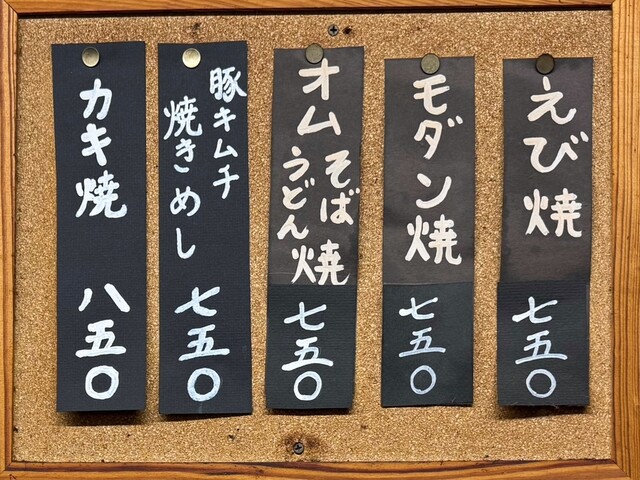 えび焼
七五〇
モダン焼
七五〇
オムそば焼
うどん
七五〇
豚キムチ
焼きめし
七五〇
カキ焼
八五〇